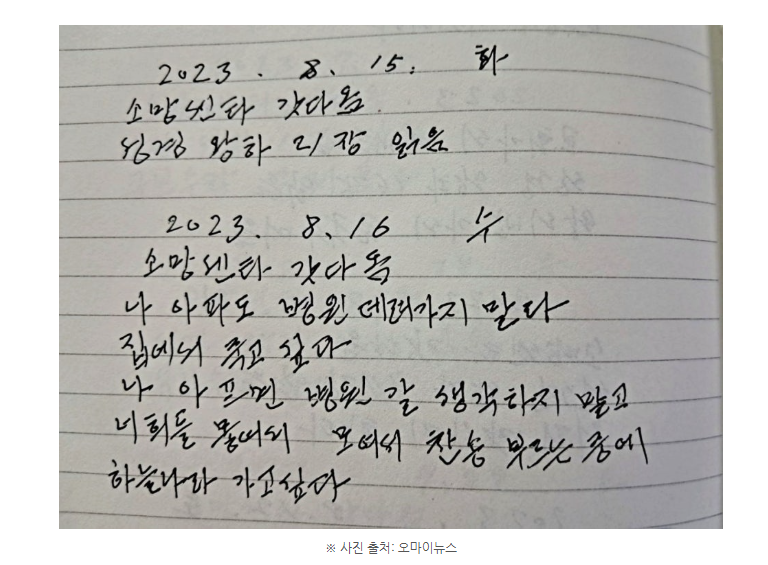 2023. 8. 15. 화
소망쎈타 갓다옴
성경 왕하 21장 읽음
2023. 8. 16 수
소망쎈타 갓다옥
나 아파도 병원 데려가지 말다
집에서 죽고 싶다
나 아프면 병원 갈 생각하지 말고
너희들 모여서 찬송 부르는 중에
하늘나라 가고싶다
※ 사진 출처: 오마이뉴스